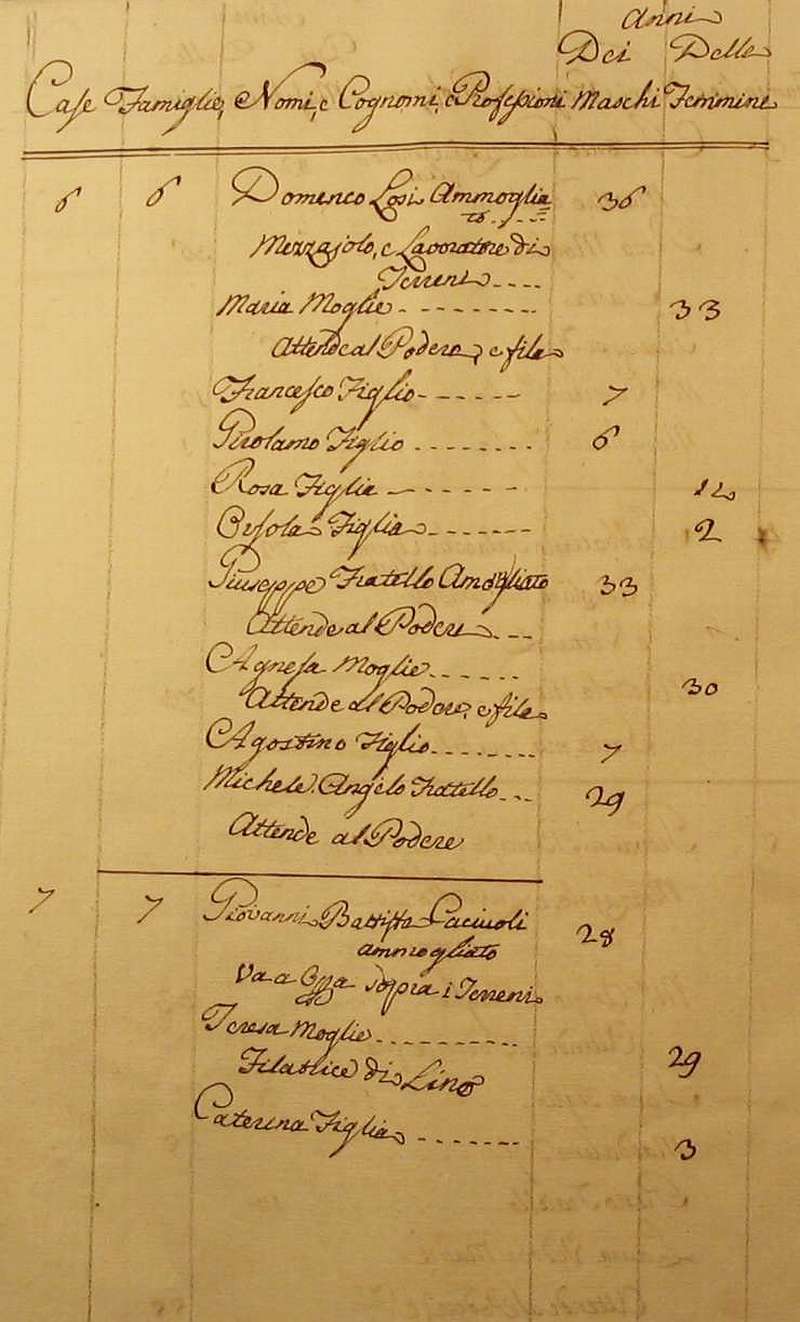 Anni
Dei Delle
Case Famiglie, Nomi, e Cognomi, e Professioni Maschi Femmine
6 6 Domenico Losi Ammoglia 36
to
Mezzajolo, e Lavoratore di
Terreni
Maria Moglie 33
Attende al Podere, e fila
Francesco Figlio 7
Girolamo Figlio 6
Rosa Figlia 12
Figlia 2
Giuseppe Fratello Amogliato 33
Attende al Podere
Agnesa Moglie
Attende al Podere, e fila 30
Agostino Figlio 7
Michel'Angelo Fratello 29
Attende al Podere
7 7 Giovanni Battista 28
ammogliato
Va a i Terreni
Teresa Moglie
Filatrice di Lino 29
Caterina Figlia 3